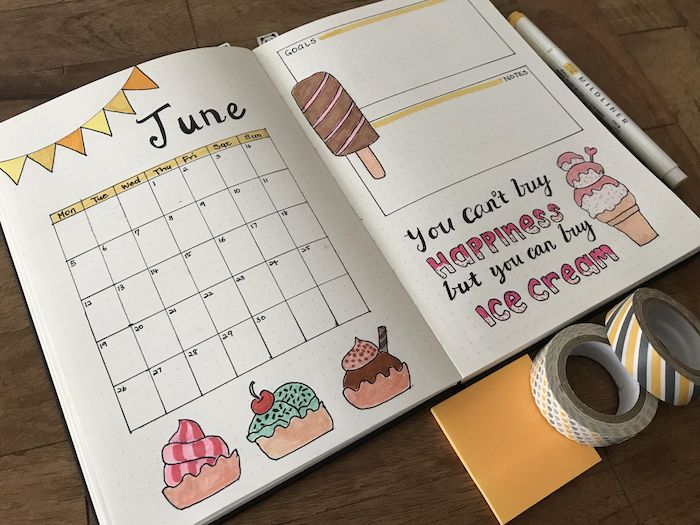 June
Mon Tue Wed Thu Fri Sat Sun
1 2 3 4
5 6 7 8 9 10 11
12 13 14 15 16 17 18
19 20 21 22 23 24 25
26 27 28 29 30
GOALS
NOTES
You can't buy
HAPPINESS
but you can buy
ICE CREAM
MILDLINER